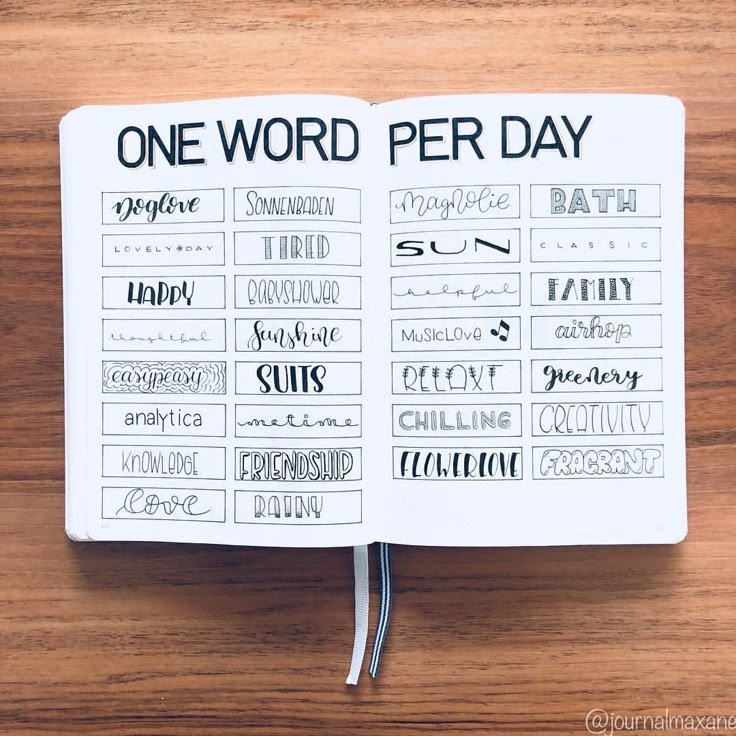 ONE WORD PER DAY
Doglove
LOVELY DAY
HAPPY
thoughtful
easypeasy
analytica
KNOWLEDGE
love
SONNENBADEN
TIRED
BABYSHOWER
Sunshine
SUITS
metime
FRIENDSHIP
RAINY
Magnolie
SUN
helpful
MUSICLOVE
RELAXT
CHILLING
FLOWERLOVE
BATH
CLASSIC
FAMILY
airhop
greenery
CREATIVITY
FRAGRANT
@journalmaxane